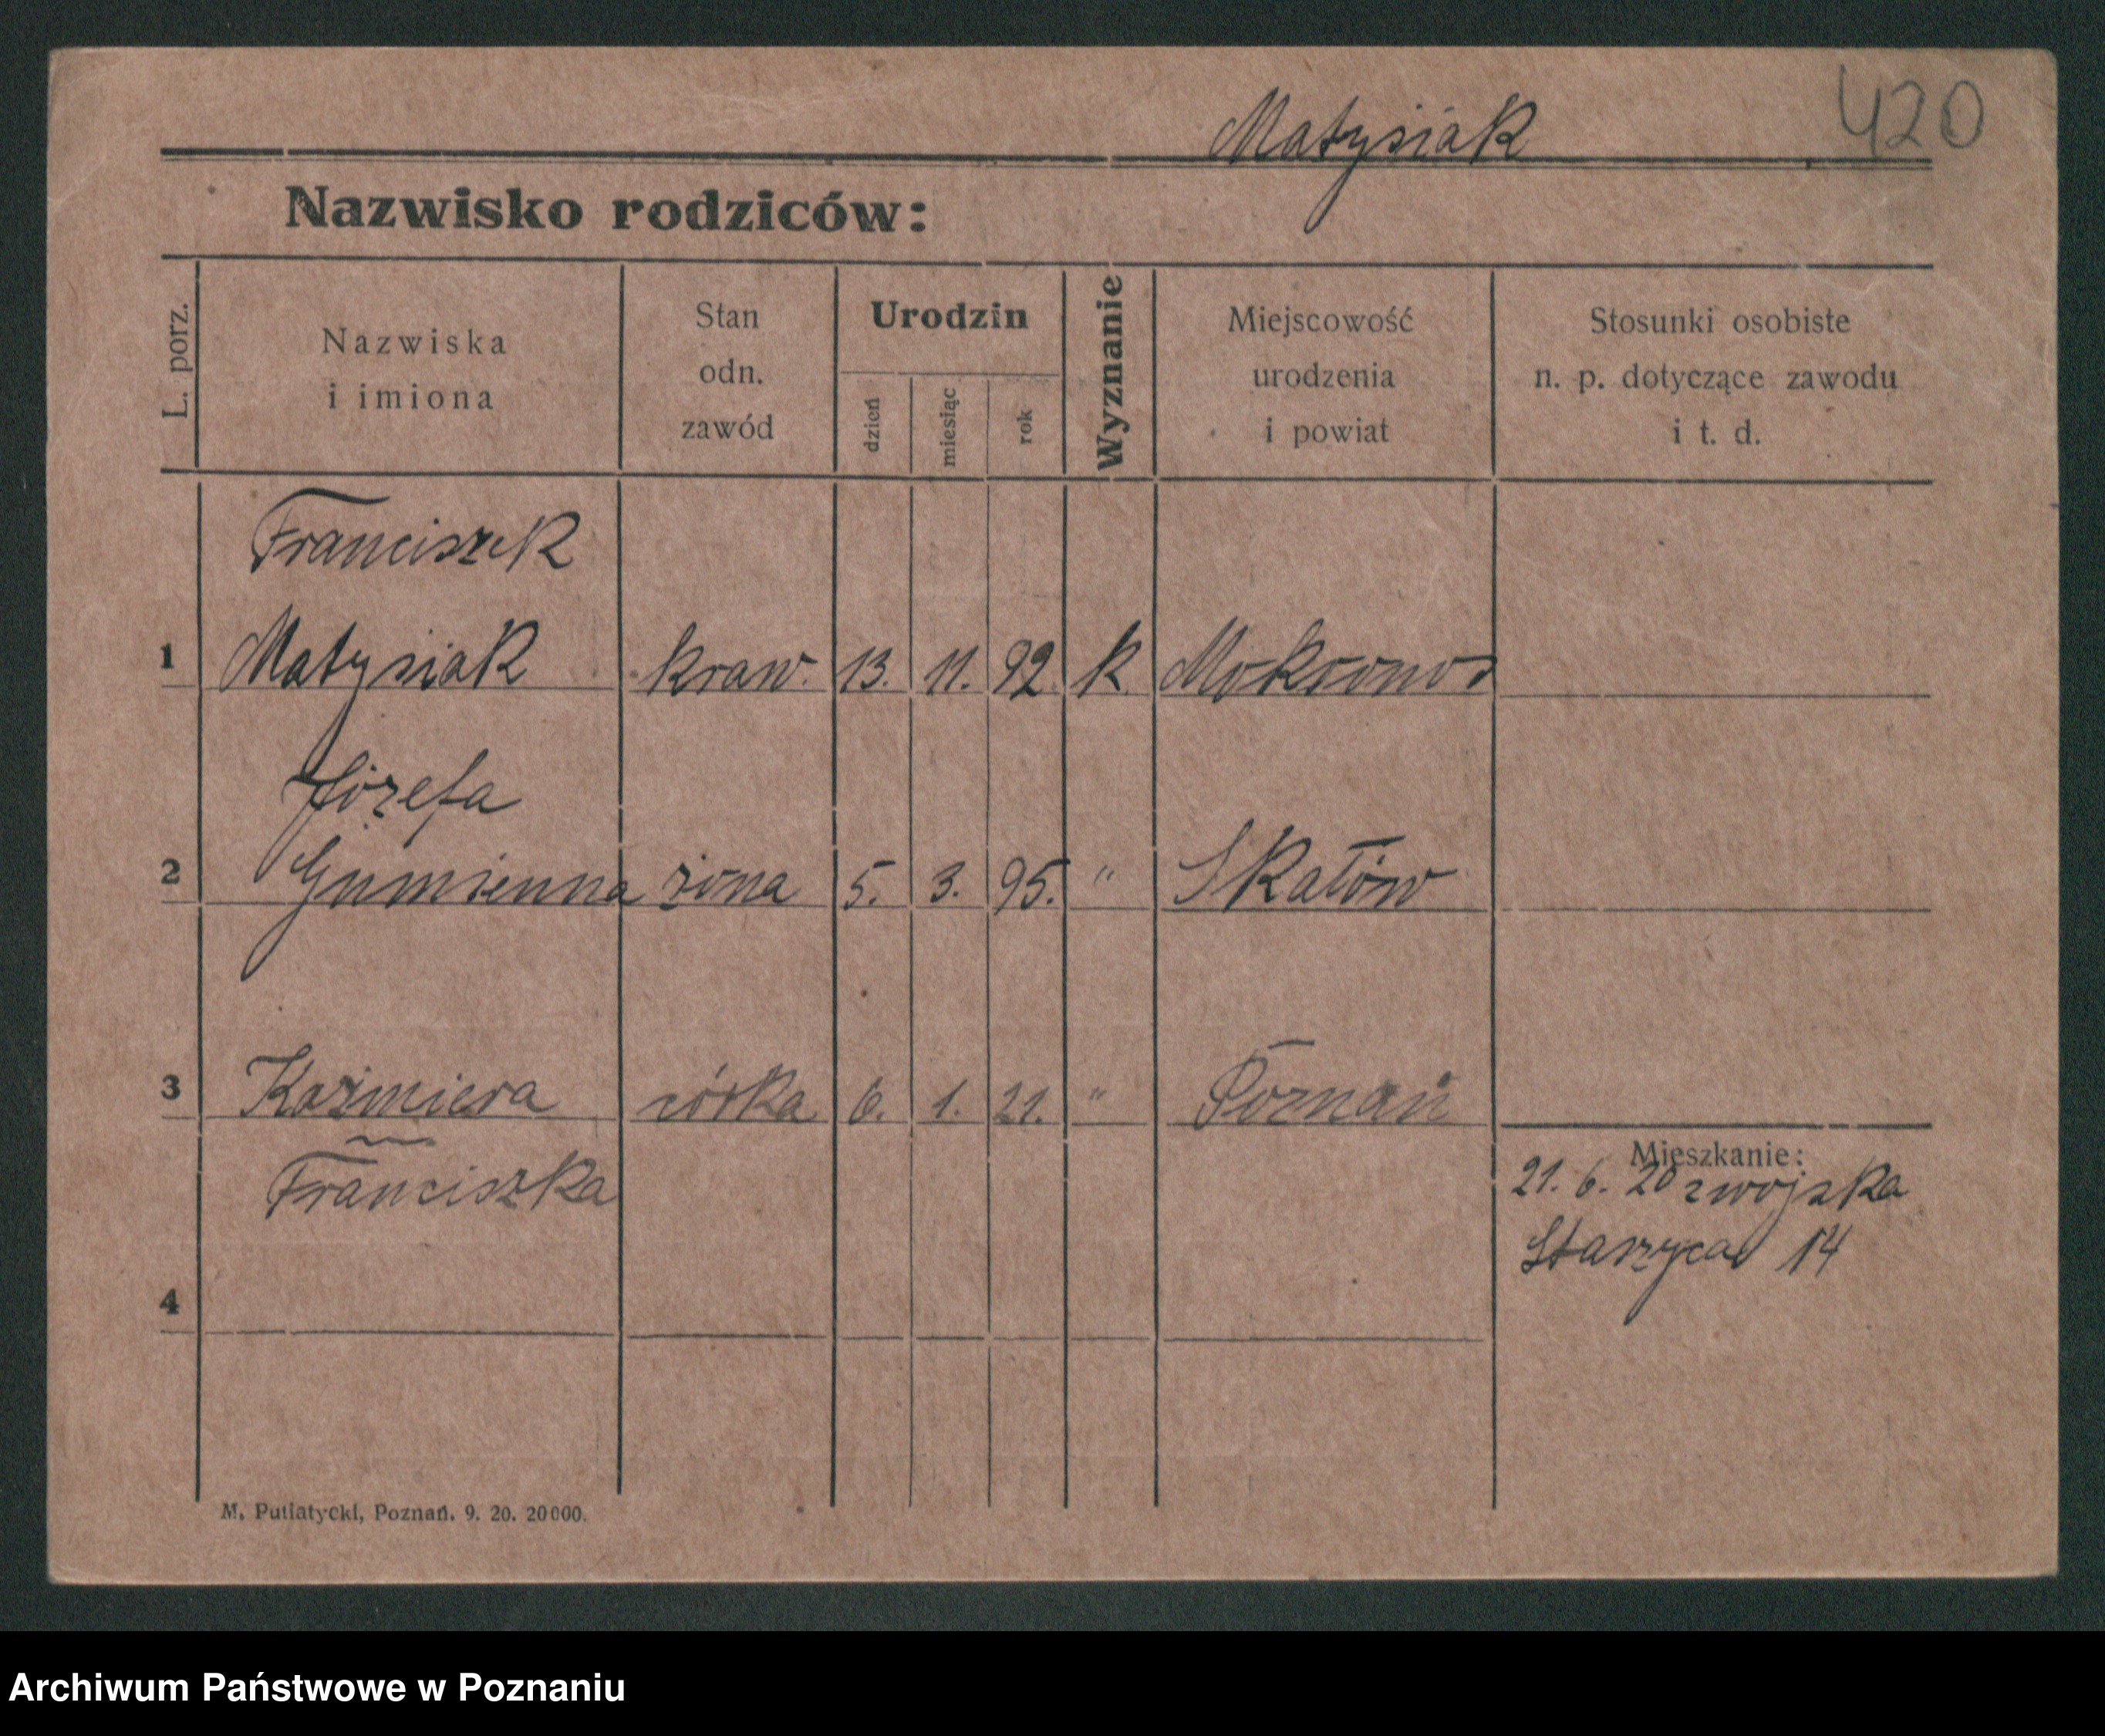 420
Matysiak
Nazwisko rodziców:
L. porz.
Nazwiska
i imiona
Stan
odn.
zawód
Urodzin
dzień
miesiąc
rok
Wyznanie
Miejscowość
urodzenia
i powiat
Stosunki osobiste
n. p. dotyczące zawodu
i t. d.
Franciszek
1 Matysiak kraw. 13. 11. 92 k Mokronos
Józefa
2 Gumienna żona 5. 3. 95. " Skałów
3 Kaźmiera córka 6. 1. 21. " Poznań
Franciszka
Mieszkanie:
21. 6. 20 z wojska
Staszyca 14
4
M. Putiatycki, Poznań. 9. 20. 20000.
Archiwum Państwowe w Poznaniu